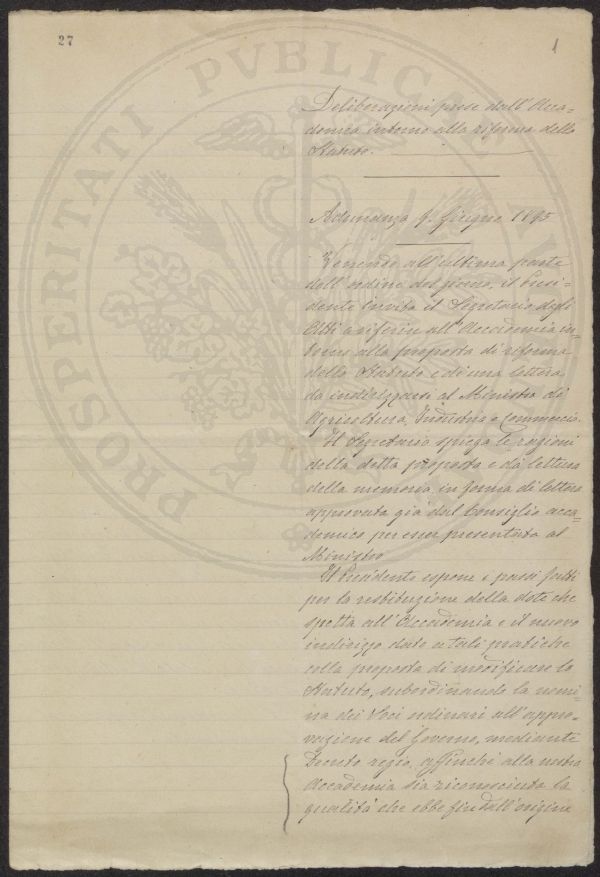 27
1
PROSPERITATI PVBLICAE AV
Deliberazioni prese dall'Acca=
demia intorno alla riforma dello
Statuto.
Adunanza 9. Giugno 1895
Venendo all'ultima parte
dell'ordine del giorno, il Presi=
dente invita il Segretario degli
Atti a riferire all'Accademia in=
torno alla proposta di riforma
dello Statuto e di una lettera
da indirizzarsi al Ministro di
Agricoltura, Industria e Commercio.
Il Segretario spiega le ragioni
della detta proposta e dà lettura
della memoria in forma di lettera
approvata già dal Consiglio acca=
demico per esser presentata al
Ministro
Il Presidente espone i passi fatti
per la restituzione della dote che
spetta all'Accademia e il nuovo
indirizzo dato a tali pratiche
colla proposta di modificare lo
Statuto, subordinando la nomi=
na dei Soci ordinari all'appro=
vazione del Governo, mediante
Decreto regio, affinchè alla nostra
Accademia sia riconosciuta la
qualità che ebbe fin dall'origine